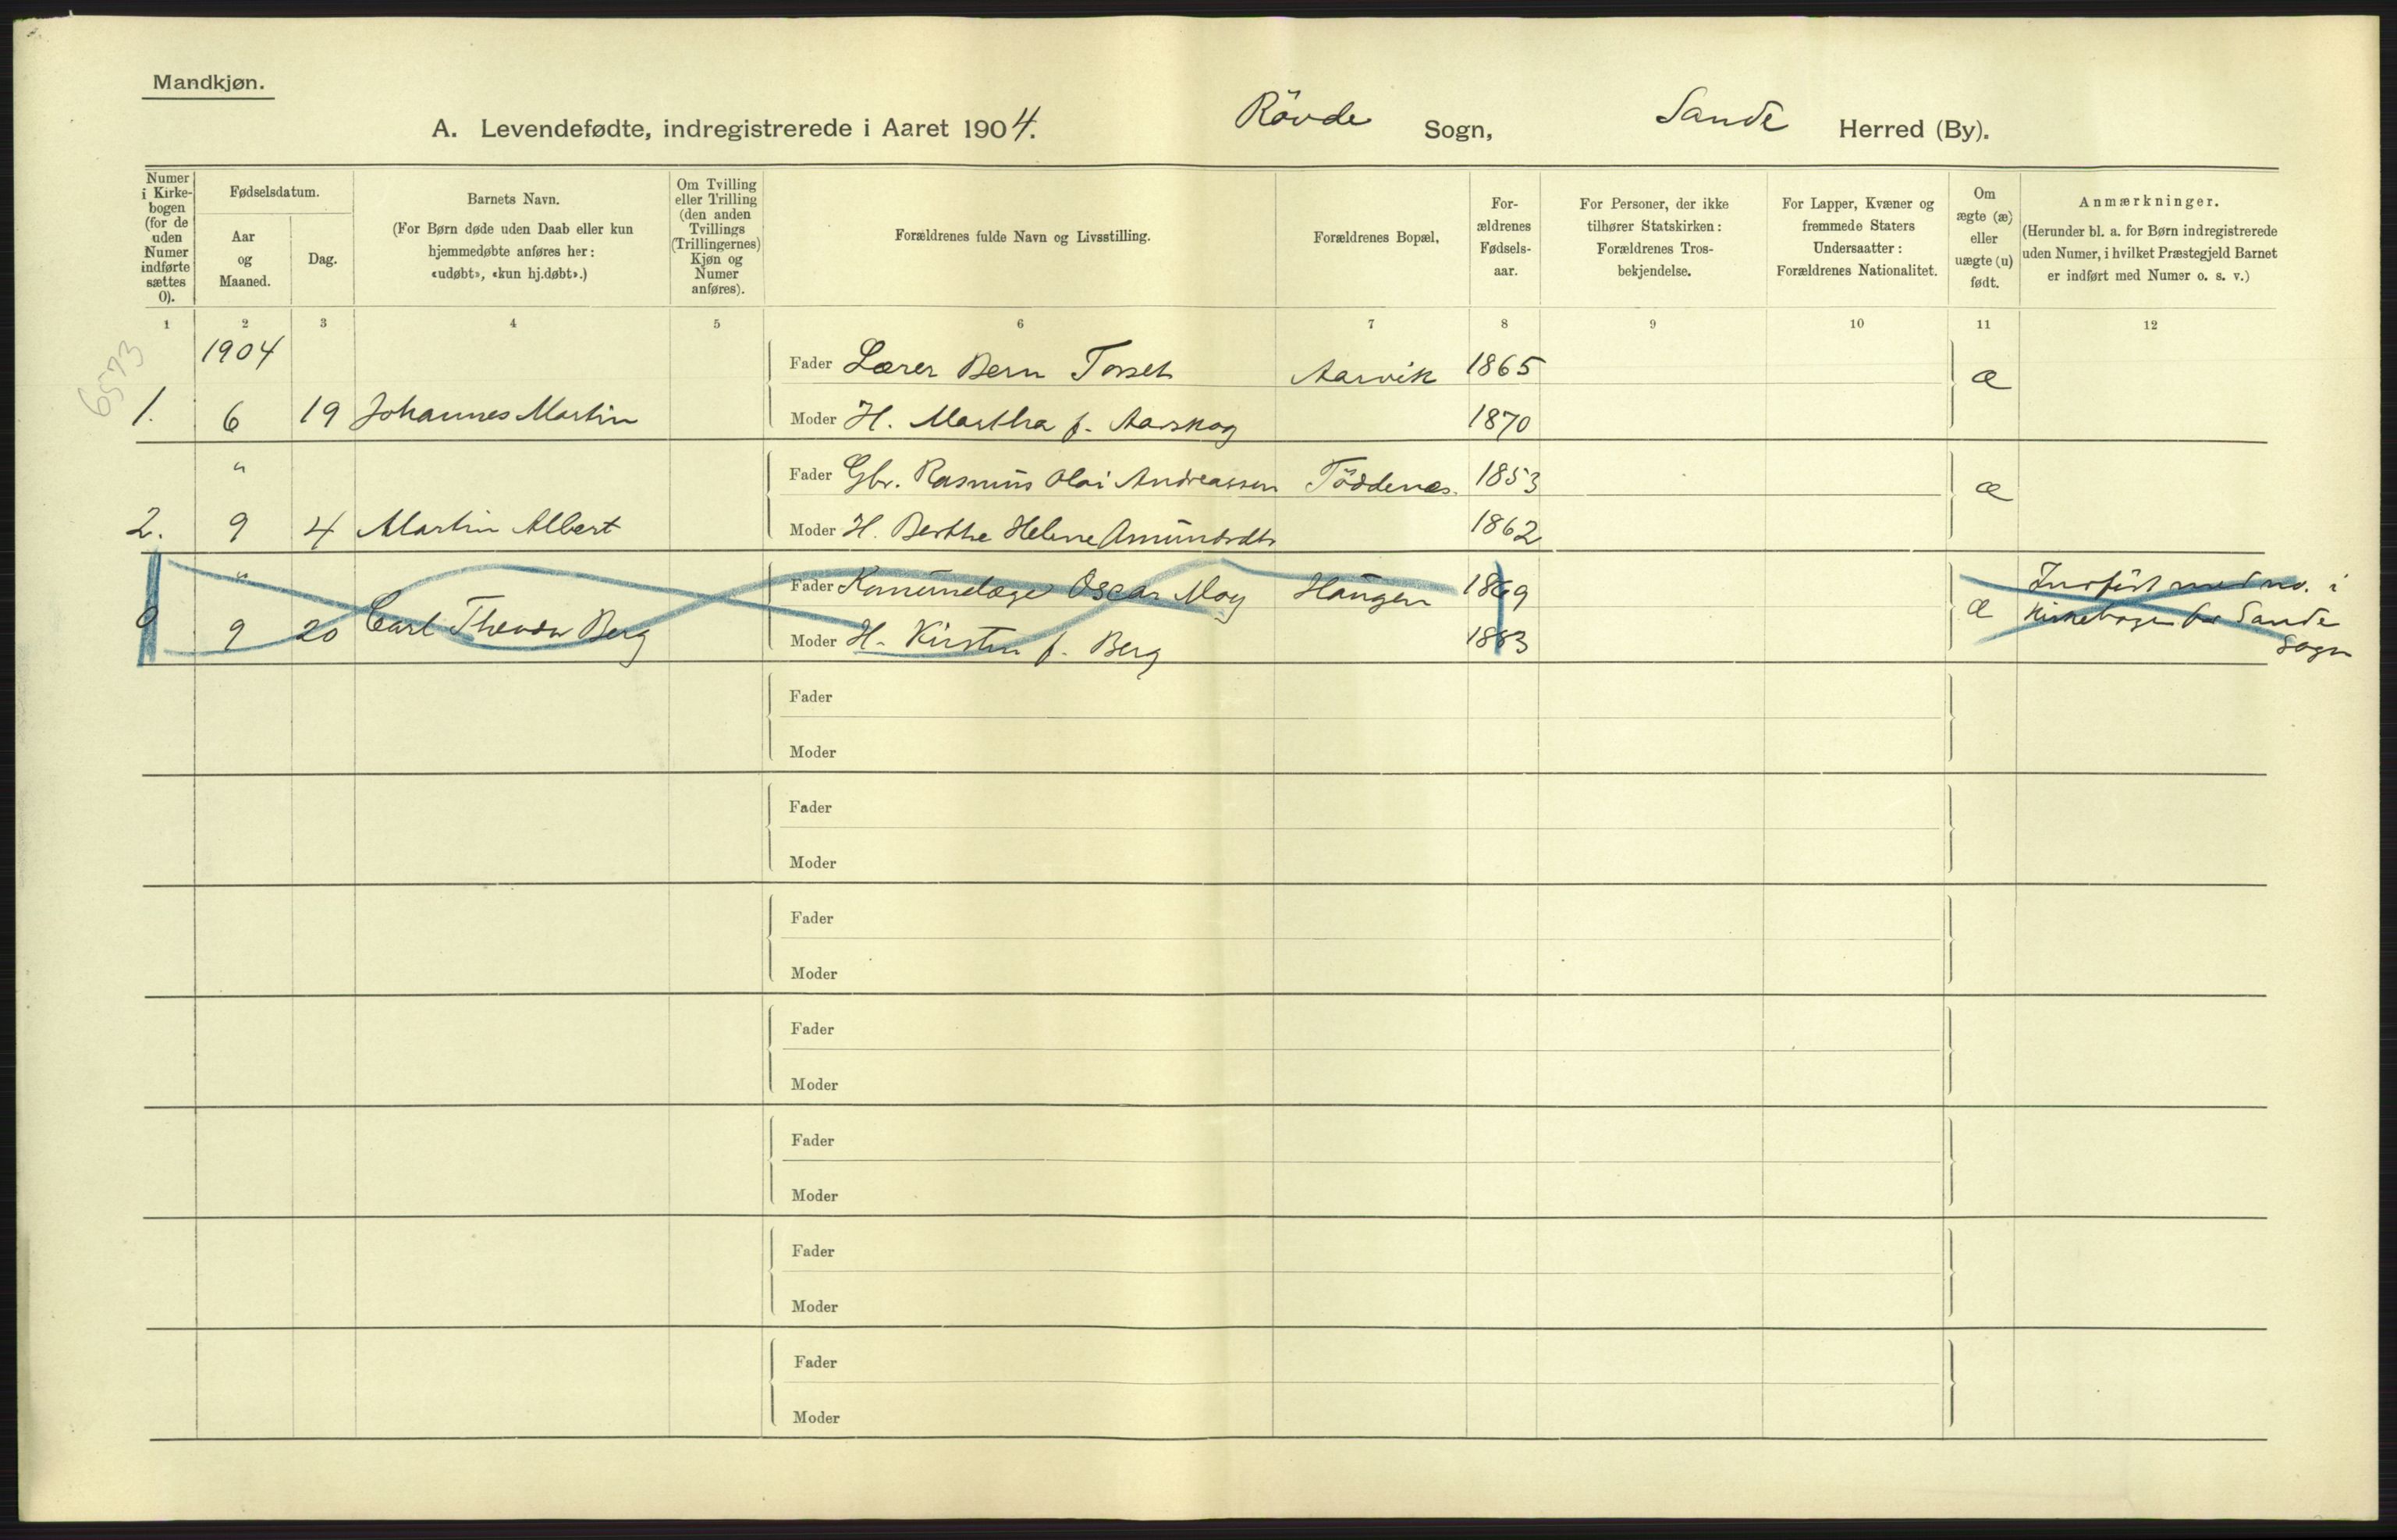 Mandkjøn.
A. Levendefødte, indregistrerede i Aaret 1904. Rövde Sogn, Sande Herred (By).
Numer i Kirkebogen (for de uden Numer indførte sættes 0).
Fødselsdatum.
Aar og Maaned.
Dag.
Barnets Navn.
(For Børn døde uden Daab eller kun hjemmedøbte anføres her: «udøbt», «kun hj.døbt».)
Om Tvilling eller Trilling (den anden Tvillings (Trillingernes) Kjøn og Numer anføres).
Forældrenes fulde Navn og Livsstilling.
Forældrenes Bopæl.
Forældrenes Fødselsaar.
For Personer, der ikke tilhører Statskirken: Forældrenes Trosbekjendelse.
For Lapper, Kvæner og fremmede Staters Undersaatter: Forældrenes Nationalitet.
Om ægte (æ) eller uægte (u) født.
Anmærkninger.
(Herunder bl. a. for Børn indregistrerede uden Numer, i hvilket Præstegjeld Barnet er indført med Numer o. s. v.)
1 2 3 4 5 6 7 8 9 10 11 12
6573
1904
Fader Lærer Bern Tosset Aarvik 1865 æ
1. 6 19 Johannes Martin Moder H. Martha f. Aarskog 1870
" Fader Gbr. Rasmus Olai Andreassen Töddenes. 1853 æ
2. 9 4 Martin Albert Moder H. Berthe Helene Amundsdtr 1862
" Fader Kommunelæge Oscar Moy Haugen 1869 æ Indført med no. i
0 9 20 Carl Theodor Berg Moder H. Kirsten f. Berg 1883 Kirkebogen for Sande
Sogn
Fader
Moder
Fader
Moder
Fader
Moder
Fader
Moder
Fader
Moder
Fader
Moder
Fader
Moder